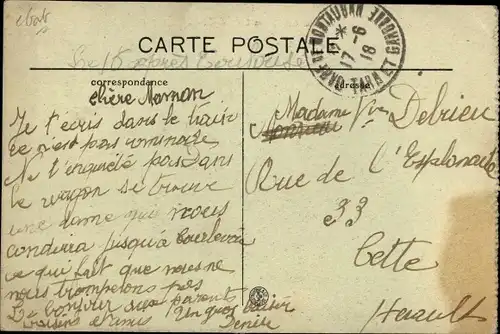 CARTE POSTALE
correspondance
adresse
GARE DE MONTAUBAN
TARN ET GARONNE
17 - 6
18
chère Maman
Je t'écris dans le train
ce n'est pas commode
Ne t'inquiète pas dans
le wagon se trouve
une dame qui nous
conduira jusqu'à
ce qui fait que nous ne
nous tromperons pas
Le bonjour aux parents
voisins et amis Un gros baiser
Denise
Madame Vve Debrieu
Rue de l'Esplanade
33
Cette
Herault